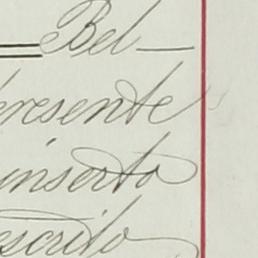 Bel
presente
inserto
escrito